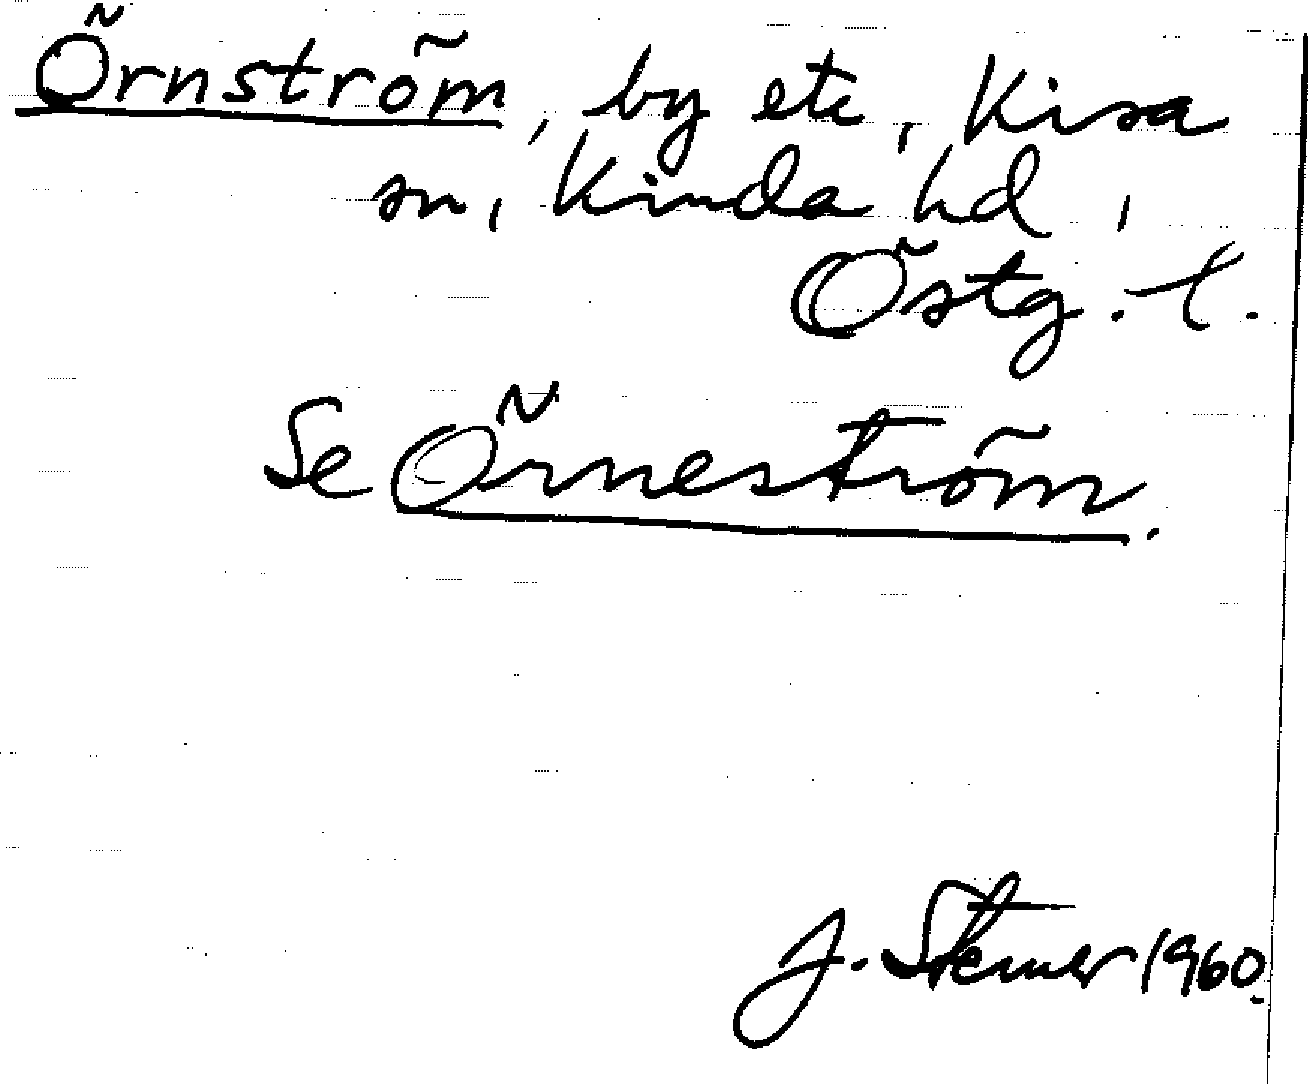 Örnström, by etc, Kisa
sn, Kinda hd,
Östg. l.
Se Örneström.
J. 1960.